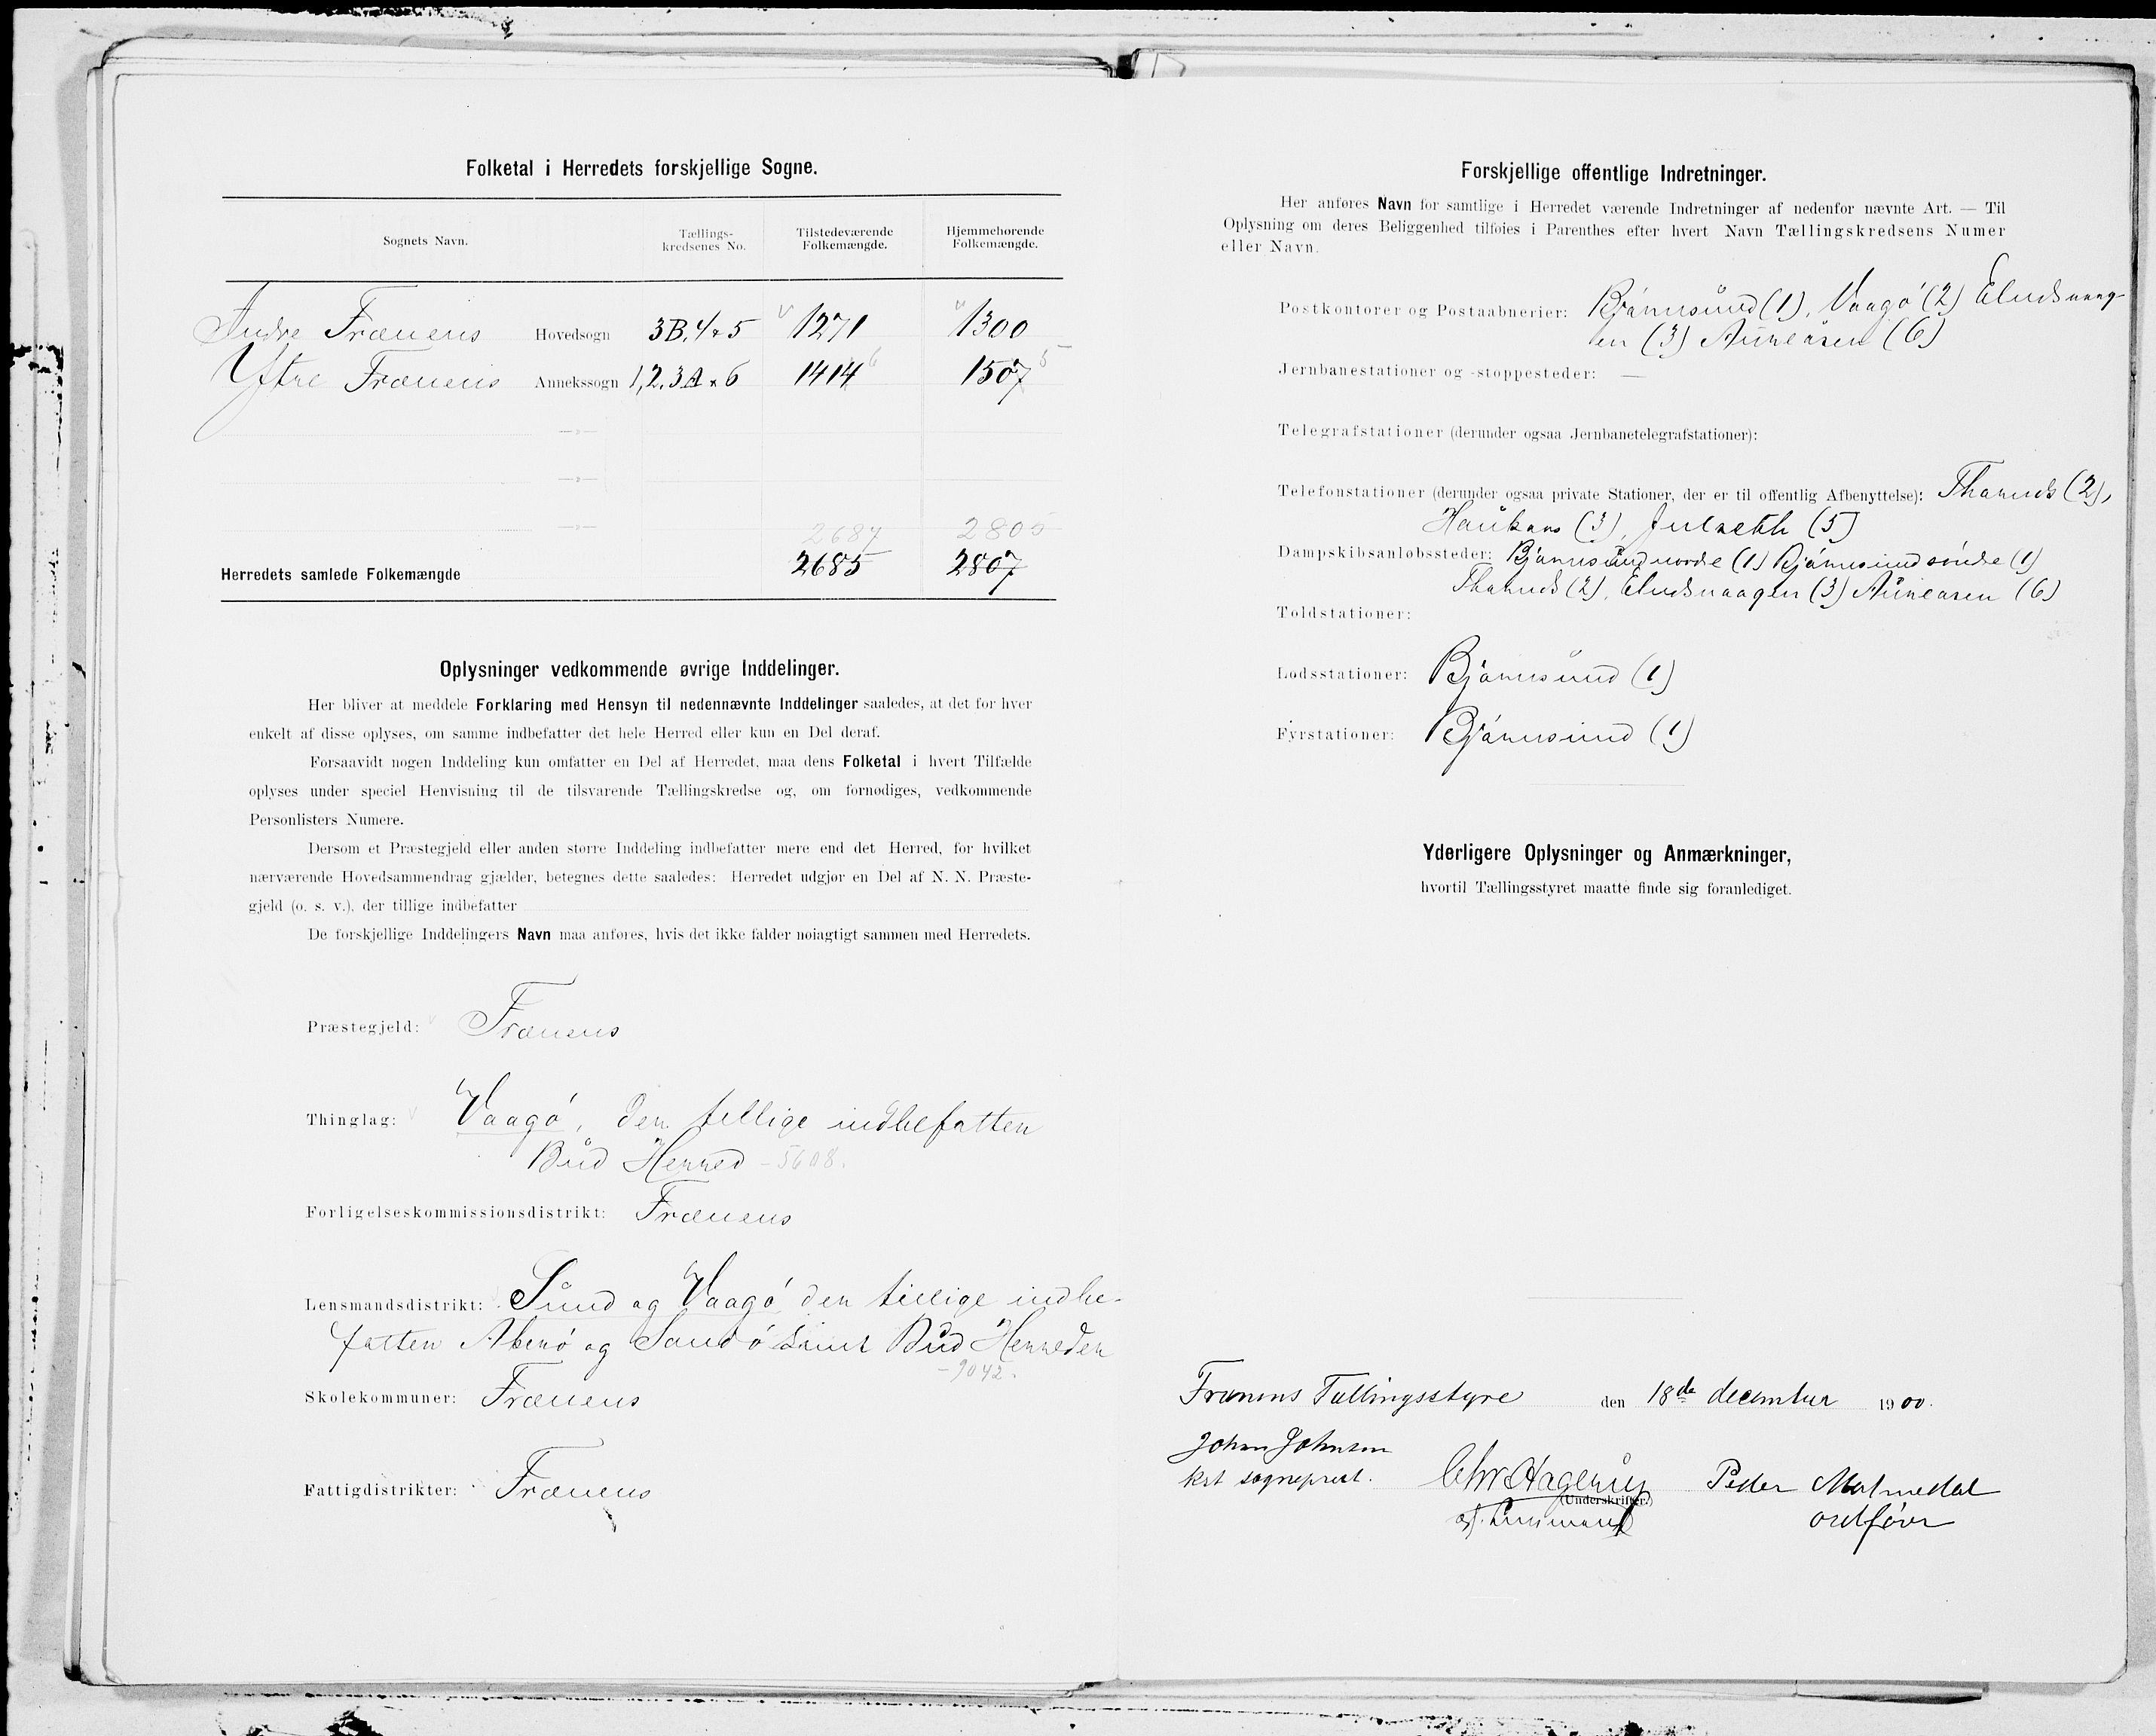 Folketal i Herredets forskjellige Sogne.
Sognets Navn.
Tællings-
kredsenes No.
Tilstedeværende
Folkemængde.
Hjemmehørende
Folkemængde.
Indre Frænens Hovedsogn 3B, 4 & 5 1271 1300
Ytre Frænens Annekssogn 1, 2, 3A & 6 1414 6 1507 5
—»—
—»—
—»— 2687 2805
Herredets samlede Folkemængde 2685 2807
Oplysninger vedkommende øvrige Inddelinger.
Her bliver at meddele Forklaring med Hensyn til nedennævnte Inddelinger saaledes, at det for hver
enkelt af disse oplyses, om samme indbefatter det hele Herred eller kun en Del deraf.
Forsaavidt nogen Inddeling kun omfatter en Del af Herredet, maa dens Folketal i hvert Tilfælde
oplyses under speciel Henvisning til de tilsvarende Tællingskredse og, om fornødiges, vedkommende
Personlisters Numere.
Dersom et Præstegjeld eller anden større Inddeling indbefatter mere end det Herred, for hvilket
nærværende Hovedsammendrag gjælder, betegnes dette saaledes: Herredet udgjør en Del af N. N. Præste-
gjeld (o. s. v.), der tillige indbefatter
De forskjellige Inddelingers Navn maa anføres, hvis det ikke falder nøiagtigt sammen med Herredets.
Præstegjeld: Frænens
Thinglag: Vaagø, der tillige indbefatter
Bud Herred – 5608.
Forligelseskommissionsdistrikt: Frænens
Lensmandsdistrikt: Sund og Vaagø der tillige indbe-
fatter Akerø og Sandø samt Bud Herreder
– 9042.
Skolekommuner: Frænens
Fattigdistrikter: Frænens
Forskjellige offentlige Indretninger.
Her anføres Navn for samtlige i Herredet værende Indretninger af nedenfor nævnte Art. — Til
Oplysning om deres Beliggenhed tilføies i Parenthes efter hvert Navn Tællingskredsens Numer
eller Navn.
Postkontorer og Postaabnerier: Bjørnsund (1), Vaagø (2) Elnesvaag-
en (3) Aureosen (6)
Jernbanestationer og -stoppesteder: —
Telegrafstationer (derunder ogsaa Jernbanetelegrafstationer):
Telefonstationer (derunder ogsaa private Stationer, der er til offentlig Afbenyttelse): Tharnes (2),
Haukaas (3), Julseth (5)
Dampskibsanløbssteder: Bjørnsund nordre (1) Bjørnsund søndre (1)
Tharnes (2), Elnesvaagen (3) Aureosen (6)
Toldstationer:
Lodsstationer: Bjørnsund (1)
Fyrstationer: Bjørnsund (1)
Yderligere Oplysninger og Anmærkninger,
hvortil Tællingsstyret maatte finde sig foranlediget.
Frænens Tællingsstyre den 18de december 1900.
Johan Johnsen
kst sogneprest. Chr. Hagerup Peder Malmedal
(Underskrifter.)
lensmand ordfører